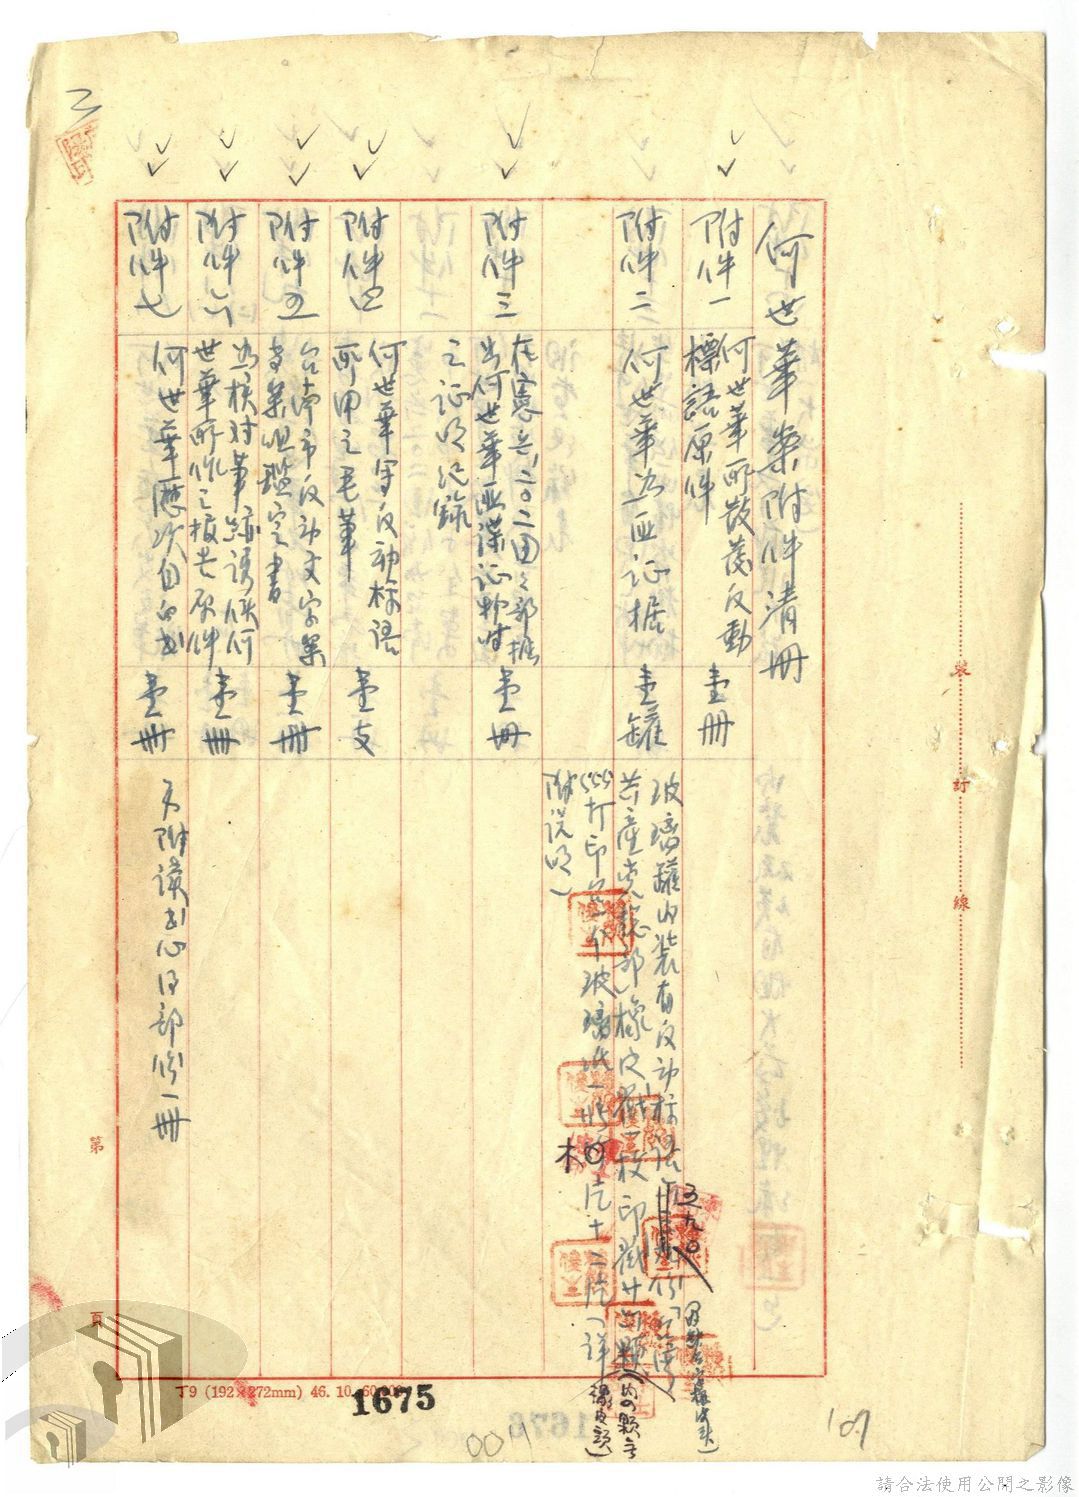 何世華案附件清冊
附件一
何世華所散發反動
標語原件
壹冊
附件二
何世華為匪証据
壹罐
玻璃罐內裝有反動标語
五九〇
份「台湾
共產党
橡皮戳一枚印戳廿
顆
內四顆無
橡皮頭)
打印
玻璃紙一
十二
(詳
附說明)
附件三
在憲兵二〇二團團部据
出何世華匪諜証物時
之証明紀錄
壹冊
附件四
何世華写反動标語
所用之毛筆
壹支
附件五
台湾市反动文字案
專案組鑑定書
壹冊
附件六
為核对筆跡誘使何
世華所作之報告原件
壹冊
附件七
何世華歷次自白書
壹冊
另附讀書心得部份一冊
裝
訂
線
第
頁
T9 (192×272mm) 46. 10. 60,000
1675
107
請合法使用公開之影像